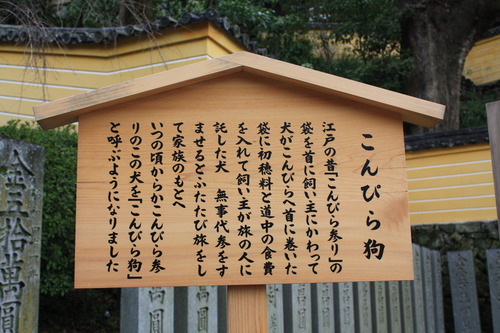 こんぴら狗
江戸の昔「こんぴら参り」の
袋を首に飼い主にかわって
犬がこんぴらへ首に巻いた
袋に初穂料と道中の食費
を入れて飼い主が旅の人に
託した犬 無事代参をす
ませるとふたたび旅をし
て家族のもとへ
いつの頃からかこんぴら参
りのこの犬を「こんぴら狗」
と呼ぶようになりました
金三拾萬圓